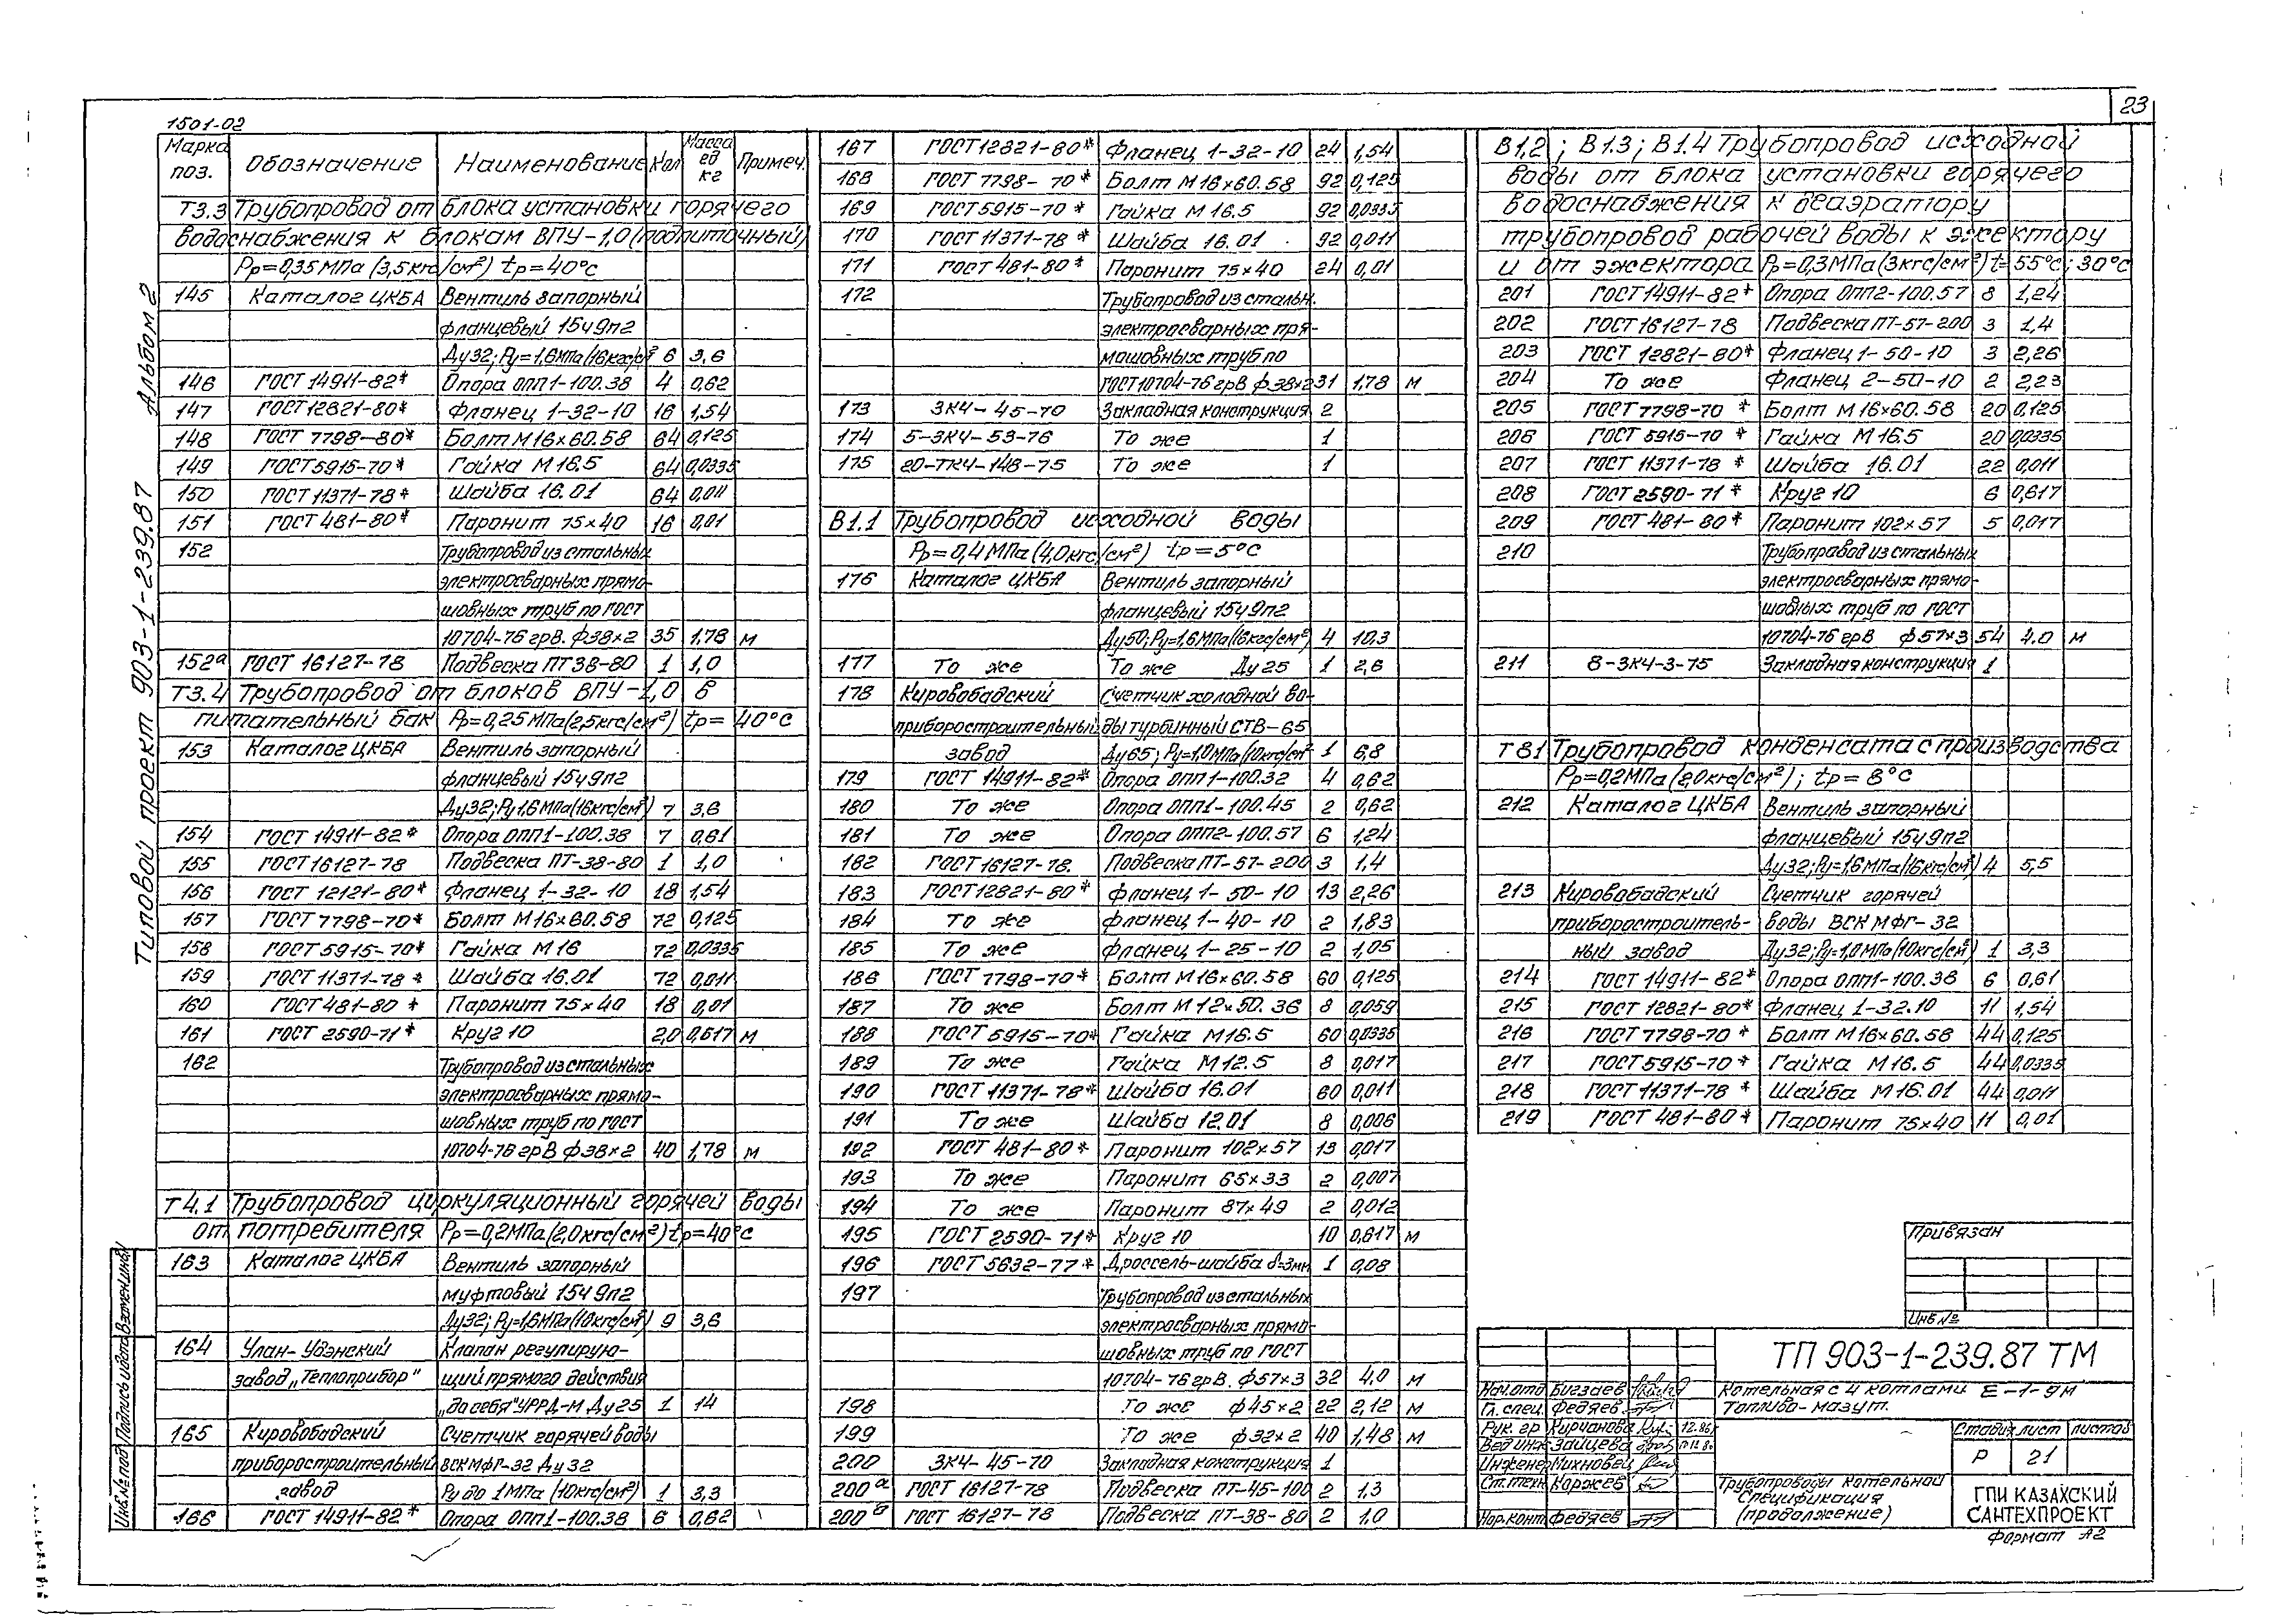 23
1501-02
Марка поз. Обозначение Наименование Кол Масса ед кг Примеч.
Т3.3 Трубопровод от блока установки горячего
водоснабжения к блокам ВПУ-1,0 (подпиточный)
Рр=0,35МПа (3,5кгс/см²) tр=40°С
145 Каталог ЦКБА Вентиль запорный
фланцевый 15ч9п2
Ду32; Ру=1,6МПа(16кгс/см² 6 3,6
146 ГОСТ 14911-82* Опора ОПП1-100.38 4 0,62
147 ГОСТ12821-80* Фланец 1-32-10 16 1,54
148 ГОСТ 7798-80* Болт М16×60.58 64 0,125
149 ГОСТ5915-70* Гайка М16.5 64 0,0335
150 ГОСТ11371-78* Шайба 16.01 64 0,011
151 ГОСТ 481-80* Паронит 75×40 16 0,01
152 Трубопровод из стальных
электросварных прямо-
шовных труб по ГОСТ
10704-76 грВ. ф38×2 35 1,78 м
152а ГОСТ 16127-78 Подвеска ПТ38-80 1 1,0
Т3.4 Трубопровод от блоков ВПУ-1,0 в
питательный бак Рр=0,25МПа(2,5кгс/см²) tр= 40°С
153 Каталог ЦКБА Вентиль запорный
фланцевый 15ч9п2
Ду32; Ру1,6МПа(16кгс/см²) 7 3,6
154 ГОСТ 14911-82* Опора ОПП1-100.38 7 0,61
155 ГОСТ16127-78 Подвеска ПТ-38-80 1 1,0
156 ГОСТ 12121-80* Фланец 1-32-10 18 1,54
157 ГОСТ7798-70* Болт М16×60.58 72 0,125
158 ГОСТ5915-70* Гайка М16 72 0,0335
159 ГОСТ11371-78* Шайба 16.01 72 0,011
160 ГОСТ481-80* Паронит 75×40 18 0,01
161 ГОСТ 2590-71* Круг 10 2,0 0,617 м
162 Трубопровод из стальных
электросварных прямо-
шовных труб по ГОСТ
10704-76 грВ ф38×2 40 1,78 м
Т4.1 Трубопровод циркуляционный горячей воды
от потребителя Рр=0,2МПа(2,0кгс/см²) tр=40°С
163 Каталог ЦКБА Вентиль запорный
муфтовый 15ч9п2
Ду32; Ру=1,6МПа(10кгс/см²) 9 3,6
164 Улан-Удэнский Клапан регулирую-
завод „Теплоприбор" щий прямого действия
„до себя" УРРД-М Ду25 1 14
165 Кировобадский Счетчик горячей воды
приборостроительный ВСКМФГ-32 Ду32
завод Ру до 1МПа (10кгс/см²) 1 3,3
166 ГОСТ 14911-82* Опора ОПП1-100.38 6 0,62
167 ГОСТ12821-80* Фланец 1-32-10 24 1,54
168 ГОСТ 7798-70* Болт М16×60.58 92 0,125
169 ГОСТ5915-70* Гайка М16.5 92 0,0335
170 ГОСТ 11371-78* Шайба 16.01 92 0,011
171 ГОСТ 481-80* Паронит 75×40 24 0,01
172 Трубопровод из стальн.
электросварных пря-
мошовных труб по
ГОСТ10704-76 грВ ф38×2 31 1,78 м
173 ЗК4-45-70 Закладная конструкция 2
174 5-ЗК4-53-76 То же 1
175 20-ТК4-148-75 То же 1
В1.1 Трубопровод исходной воды
Рр=0,4МПа(4,0кгс/см²) tр=5°С
176 Каталог ЦКБА Вентиль запорный
фланцевый 15ч9п2
Ду50; Ру=1,6МПа(16кгс/см²) 4 10,3
177 То же То же Ду25 1 2,6
178 Кировобадский Счетчик холодной во-
приборостроительный ды турбинный СТВ-65
завод Ду65; Ру=1,0МПа(10кгс/см² 1 6,8
179 ГОСТ 14911-82* Опора ОПП1-100.32 4 0,62
180 То же Опора ОПП1-100.45 2 0,62
181 То же Опора ОПП2-100.57 6 1,24
182 ГОСТ16127-78. Подвеска ПТ-57-200 3 1,4
183 ГОСТ12821-80* Фланец 1-50-10 13 2,26
184 То же Фланец 1-40-10 2 1,83
185 То же Фланец 1-25-10 2 1,05
186 ГОСТ 7798-70* Болт М16×60.58 60 0,125
187 То же Болт М12×50.36 8 0,059
188 ГОСТ 5915-70* Гайка М16.5 60 0,0335
189 То же Гайка М12.5 8 0,017
190 ГОСТ 11371-78* Шайба 16.01 60 0,011
191 То же Шайба 12.01 8 0,006
192 ГОСТ 481-80* Паронит 102×57 13 0,017
193 То же Паронит 65×33 2 0,007
194 То же Паронит 87×49 2 0,012
195 ГОСТ 2590-71* Круг 10 10 0,617 м
196 ГОСТ 5632-77* Дроссель-шайба δ=3мм 1 0,08
197 Трубопровод из стальных
электросварных прямо-
шовных труб по ГОСТ
10704-76 грВ. ф57×3 32 4,0 м
198 То же ф45×2 22 2,12 м
199 То же ф32×2 40 1,48 м
200 ЗК4-45-70 Закладная конструкция 1
200а ГОСТ 16127-78 Подвеска ПТ-45-100 2 1,3
200б ГОСТ 16127-78 Подвеска ПТ-38-80 2 1,0
В1,2; В1.3; В1.4 Трубопровод исходной
воды от блока установки горячего
водоснабжения к деаэратору
трубопровод рабочей воды к эжектору
и от эжектора Рр=0,3МПа(3кгс/см²) t=55°С; 30°С
201 ГОСТ14911-82* Опора ОПП2-100.57 8 1,24
202 ГОСТ16127-78 Подвеска ПТ-57-200 3 1,4
203 ГОСТ 12821-80* Фланец 1-50-10 3 2,26
204 То же Фланец 2-50-10 2 2,23
205 ГОСТ7798-70* Болт М16×60.58 20 0,125
206 ГОСТ 5915-70* Гайка М16.5 20 0,0335
207 ГОСТ 11371-78* Шайба 16.01 22 0,011
208 ГОСТ2590-71* Круг 10 6 0,617
209 ГОСТ 481-80* Паронит 102×57 5 0,017
210 Трубопровод из стальных
электросварных прямо-
шовных труб по ГОСТ
10704-76 грВ ф57×3 54 4,0 м
211 8-ЗК4-3-75 Закладная конструкция 1
Т81 Трубопровод конденсата с производства
Рр=0,2МПа(2,0кгс/см²); tр=8°С
212 Каталог ЦКБА Вентиль запорный
фланцевый 15ч9п2
Ду32; Ру=1,6МПа(16кгс/см²) 4 5,5
213 Кировобадский Счетчик горячей
приборостроитель- воды ВСКМФГ-32
ный завод Ду32; Ру=1,0МПа(10кгс/см²) 1 3,3
214 ГОСТ 14911-82* Опора ОПП1-100.38 6 0,61
215 ГОСТ 12821-80* Фланец 1-32.10 11 1,54
216 ГОСТ 7798-70* Болт М16×60.58 44 0,125
217 ГОСТ5915-70* Гайка М16.5 44 0,0335
218 ГОСТ11371-78* Шайба М16.01 44 0,011
219 ГОСТ 481-80* Паронит 75×40 11 0,01
Типовой проект 903-1-239.87 Альбом 2
Инв.№ подл Подпись и дата Взамен инв.№
Привязан
Инв №
ТП 903-1-239.87 ТМ
Нач.отд Бигзаев
Гл. спец. Федяев
Рук. гр Кирчанова 12.86
Вед инж Зайцева
Инженер Михновец
Ст.техн Коржев
Нор.конт Федяев
Котельная с 4 котлами Е-1-9М
Топливо-мазут.
Стадия лист листов
Р 21
Трубопроводы котельной
Спецификация
(продолжение)
ГПИ КАЗАХСКИЙ
САНТЕХПРОЕКТ
Формат А2